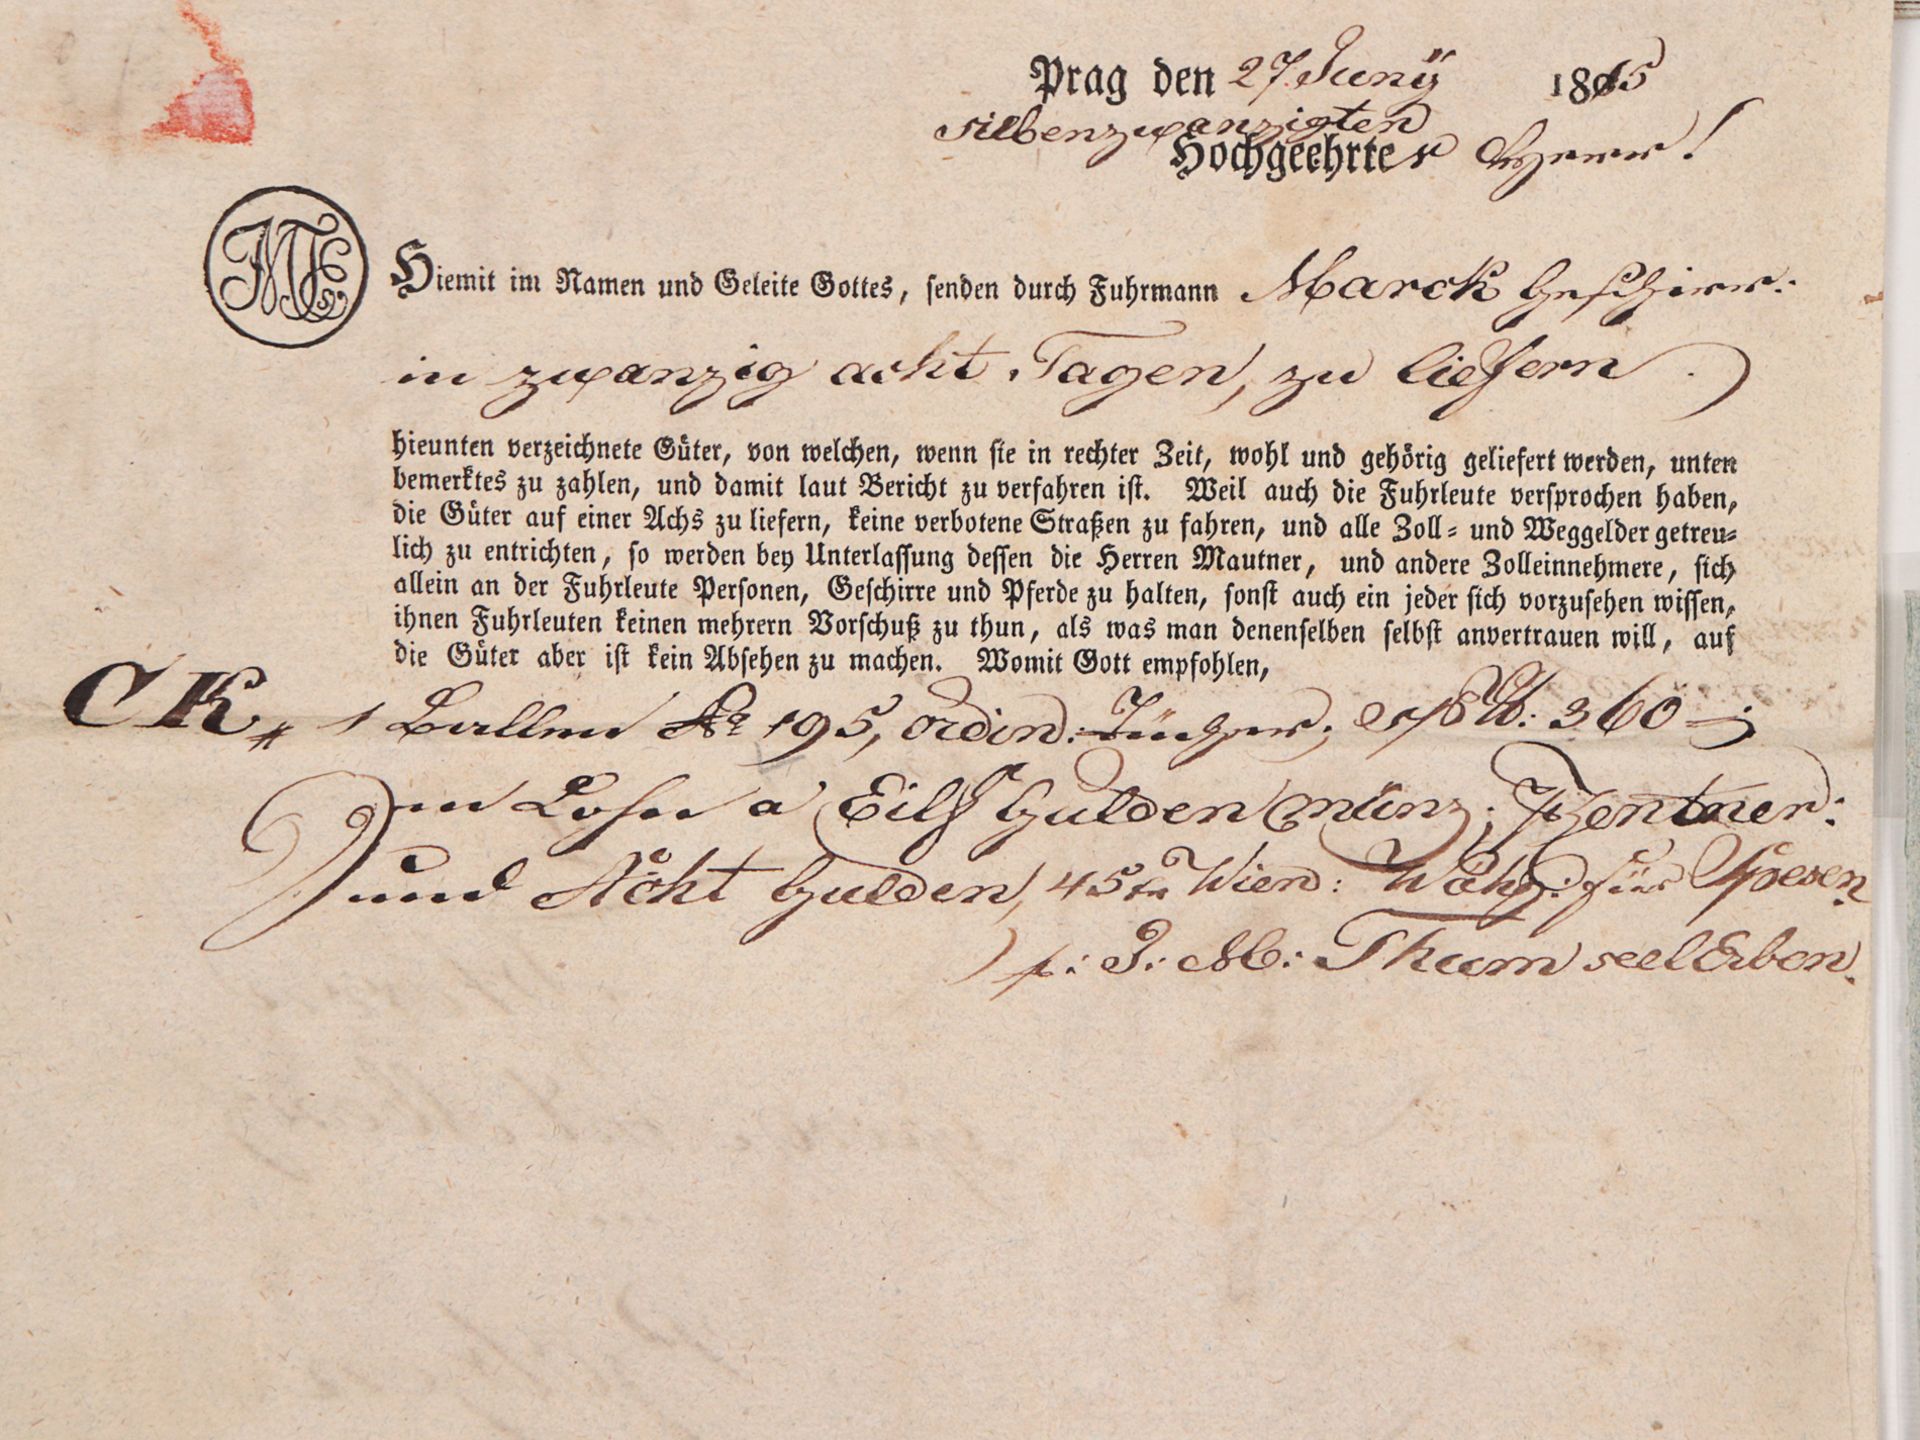 Prag den 27. Juny 1815
siebenzwanzigten
Hochgeehrter Herr!
Hiemit im Namen und Geleite Gottes, senden durch Fuhrmann Marck Geschirr:
in zwanzig acht Tagen, zu liefern
hieunten verzeichnete Güter, von welchen, wenn sie in rechter Zeit, wohl und gehörig geliefert werden, unten
bemerktes zu zahlen, und damit laut Bericht zu verfahren ist. Weil auch die Fuhrleute versprochen haben,
die Güter auf einer Achs zu liefern, keine verbotene Straßen zu fahren, und alle Zoll- und Weggelder getreu-
lich zu entrichten, so werden bey Unterlassung dessen die Herren Mautner, und andere Zolleinnehmere, sich
allein an der Fuhrleute Personen, Geschirre und Pferde zu halten, sonst auch ein jeder sich vorzusehen wissen,
ihnen Fuhrleuten keinen mehrern Vorschuß zu thun, als was man denenselben selbst anvertrauen will, auf
die Güter aber ist kein Absehen zu machen. Womit Gott empfohlen,
CK 1 Ballen No 195, ordin: Tücher; 360
Lohn a Eilf Gulden münz; Zentner:
und Acht Gulden, 45 Wien: Währ: für Spesen
p: J: M: Thum seel Erben.